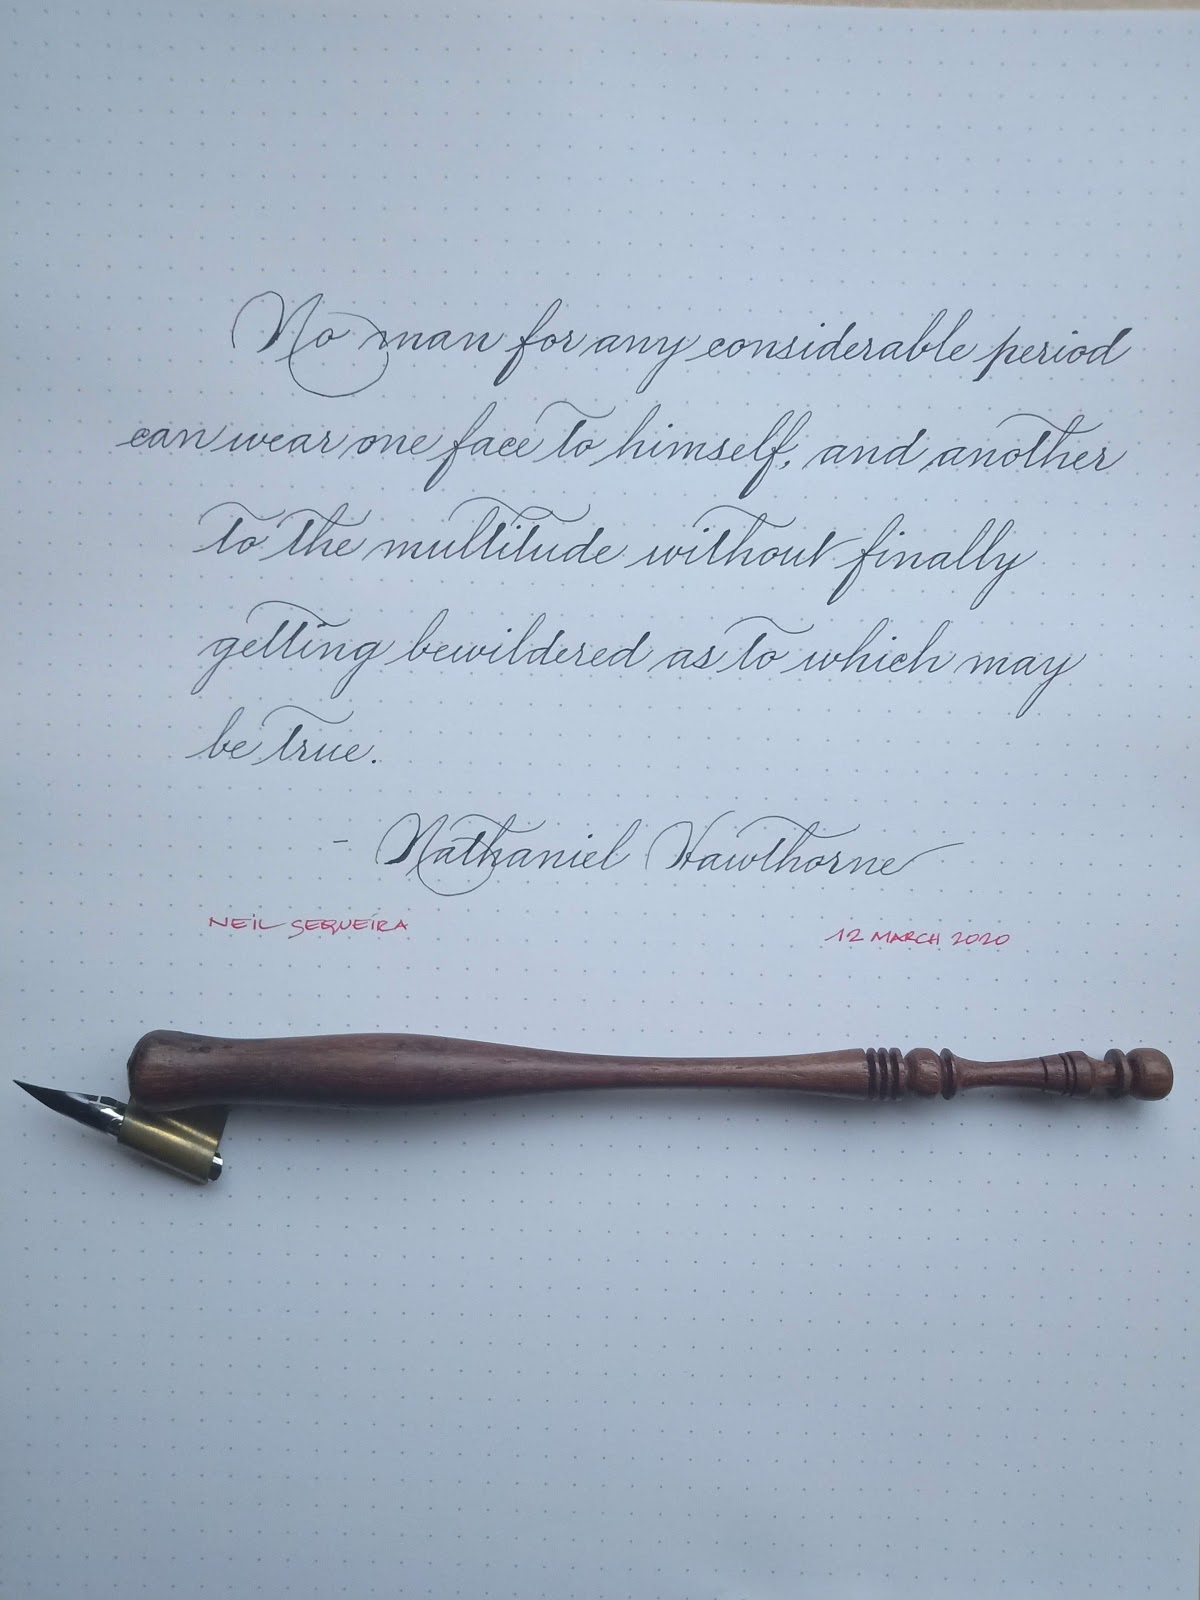 No man for any considerable period
can wear one face to himself, and another
to the multitude without finally
getting bewildered as to which may
be true.
- Nathaniel Hawthorne
NEIL SEQUEIRA
12 MARCH 2020